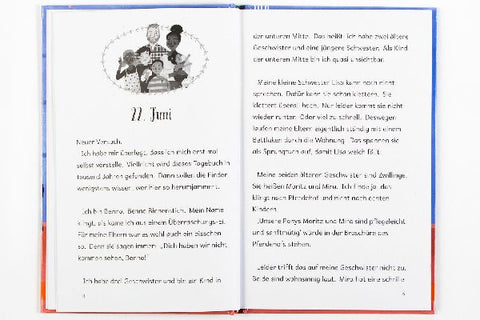 22. Juni
Neuer Versuch.
Ich habe mir überlegt, dass ich mich erst mal
selbst vorstelle. Vielleicht wird dieses Tagebuch in
tausend Jahren gefunden. Dann sollen die Finder
wenigstens wissen, wer hier so herumjammert.
Ich bin Benno. Benno Bienenstich. Mein Name
klingt, als käme ich aus einem Überraschungs-Ei.
Für meine Eltern war es wohl auch ein bisschen
so. Denn sie sagen immer: „Dich haben wir nicht
kommen sehen, Benno!“
Ich habe drei Geschwister und bin ein Kind in
der unteren Mitte. Das heißt: Ich habe zwei ältere
Geschwister und eine jüngere Schwester. Als Kind
der unteren Mitte bin ich quasi unsichtbar.
Meine kleine Schwester Lisa kann noch nicht
sprechen. Dafür kann sie schon klettern. Sie
klettert überall hoch. Nur leider kommt sie nicht
wieder runter. Oder viel zu schnell. Deswegen
laufen meine Eltern eigentlich ständig mit einem
Bettlaken durch die Wohnung. Das spannen sie
als Sprungtuch auf, damit Lisa weich fällt.
Meine beiden älteren Geschwister sind Zwillinge.
Sie heißen Moritz und Mira. Ich finde ja, das
klingt nach Pferdehof und nicht nach echten
Kindern.
„Unsere Ponys Moritz und Mira sind pflegeleicht
und sanftmütig“ würde in der Broschüre des
Pferdehofs stehen.
Leider trifft das auf meine Geschwister nicht zu.
Beide sind wahnsinnig laut. Mira hat eine schrille